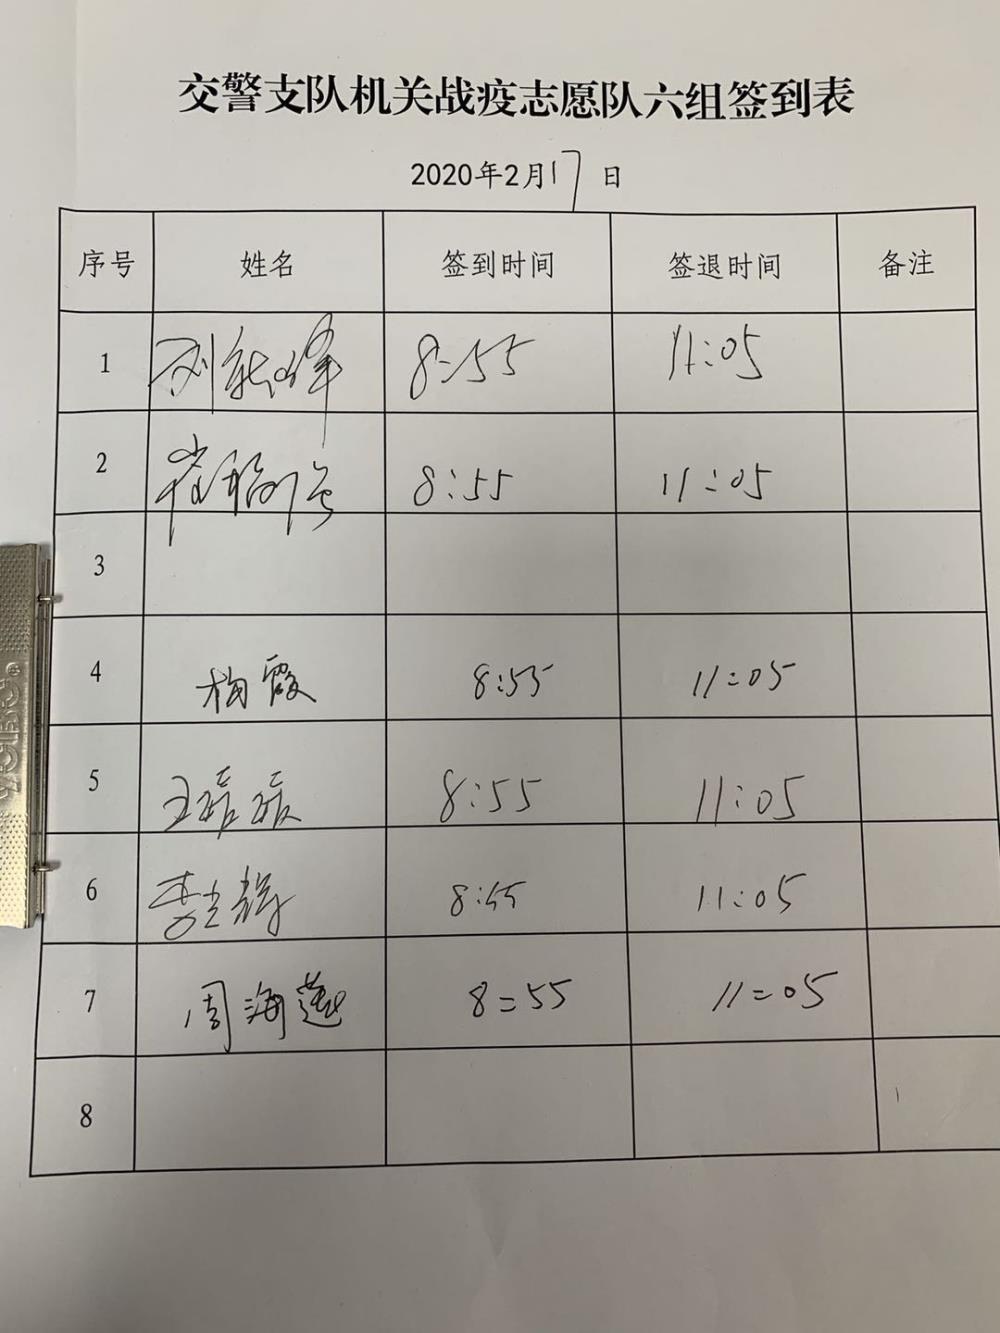 交警支队机关战疫志愿队六组签到表
2020年2月17日
序号 姓名 签到时间 签退时间 备注
1 8:55 11:05
2 8:55 11:05
3
4 梅霞 8:55 11:05
5 8:55 11:05
6 8:55 11:05
7 周海莲 8:55 11:05
8